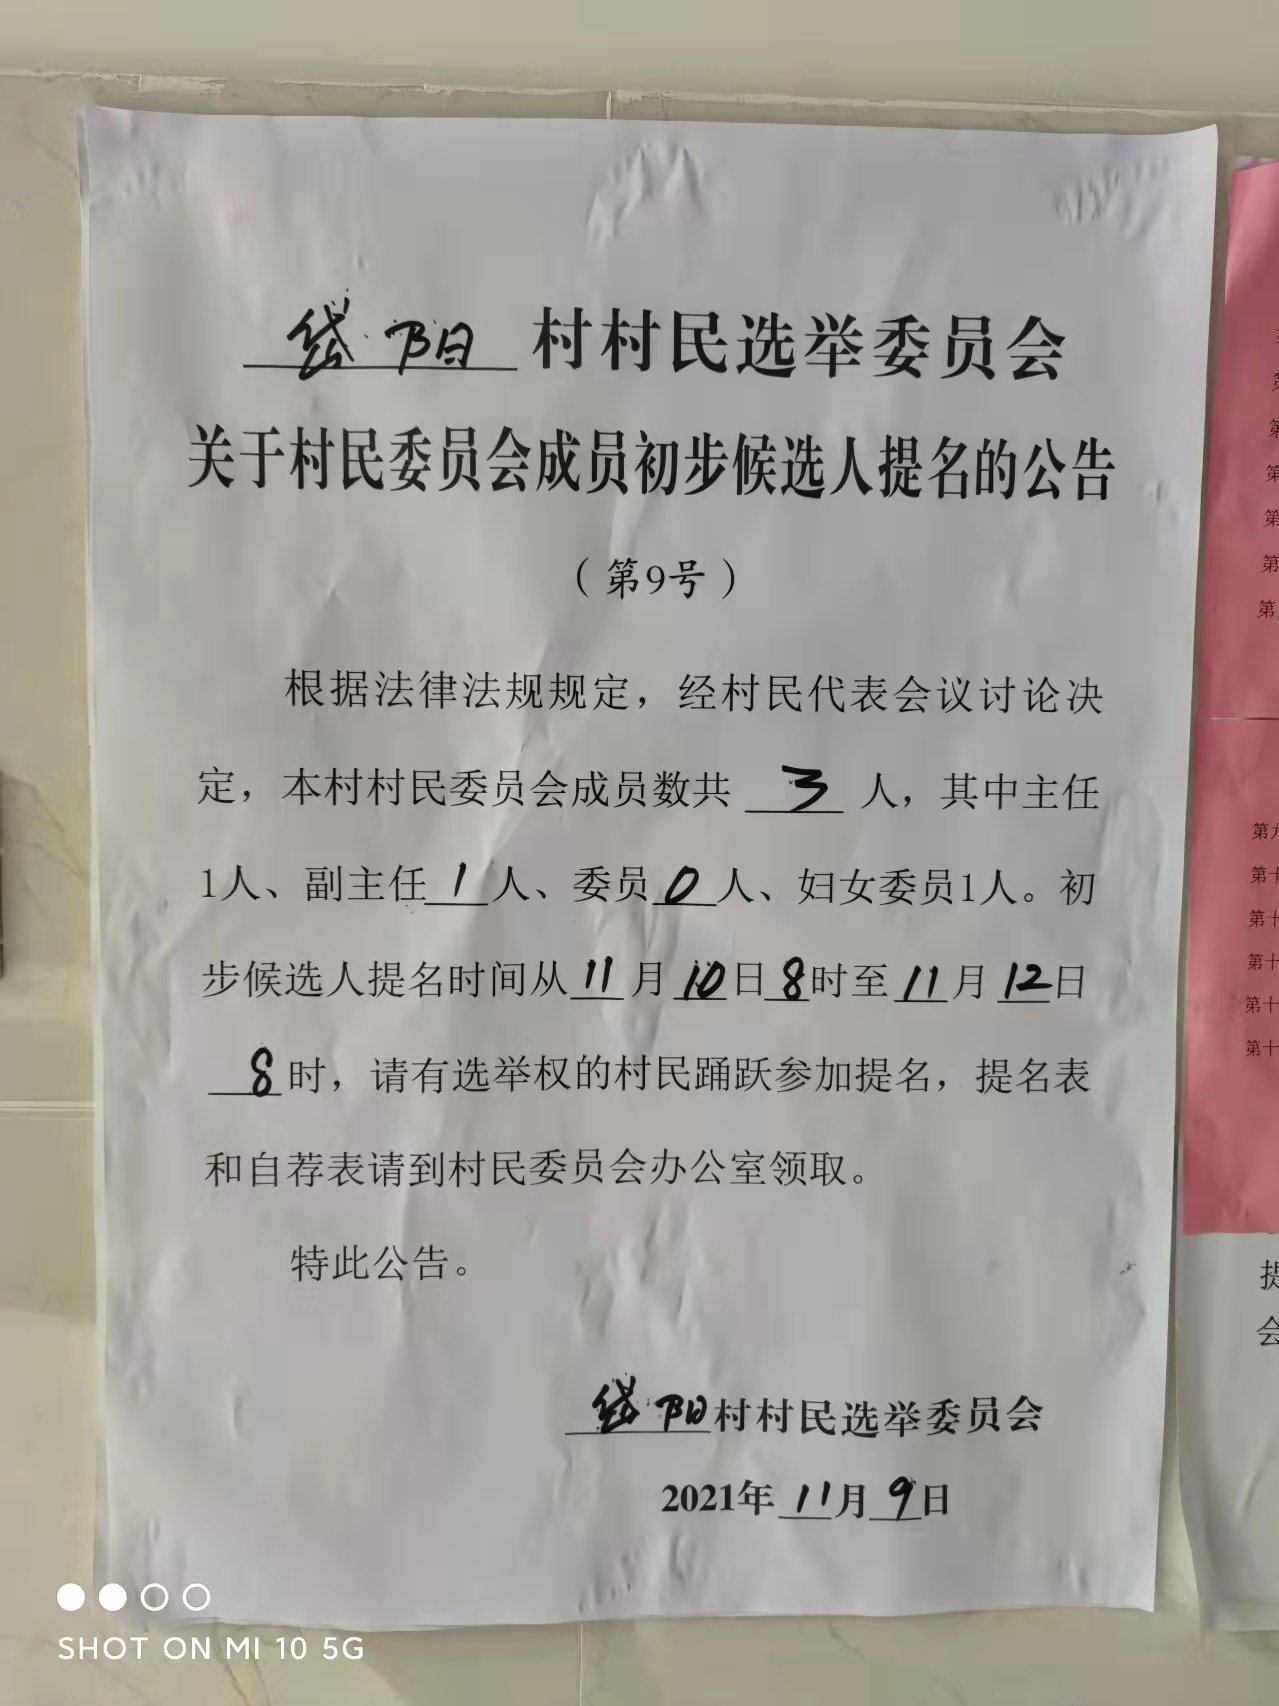 岱阳村村民选举委员会
关于村民委员会成员初步候选人提名的公告
（第9号）
根据法律法规规定，经村民代表会议讨论决
定，本村村民委员会成员数共 3 人，其中主任
1人、副主任1人、委员0人、妇女委员1人。初
步候选人提名时间从11月10日8时至11月12日
8时，请有选举权的村民踊跃参加提名，提名表
和自荐表请到村民委员会办公室领取。
特此公告。
岱阳村村民选举委员会
2021年11月9日
第
第
第
第
第
第九
第十
第十
第十
第十
第十
提
会
SHOT ON MI 10 5G